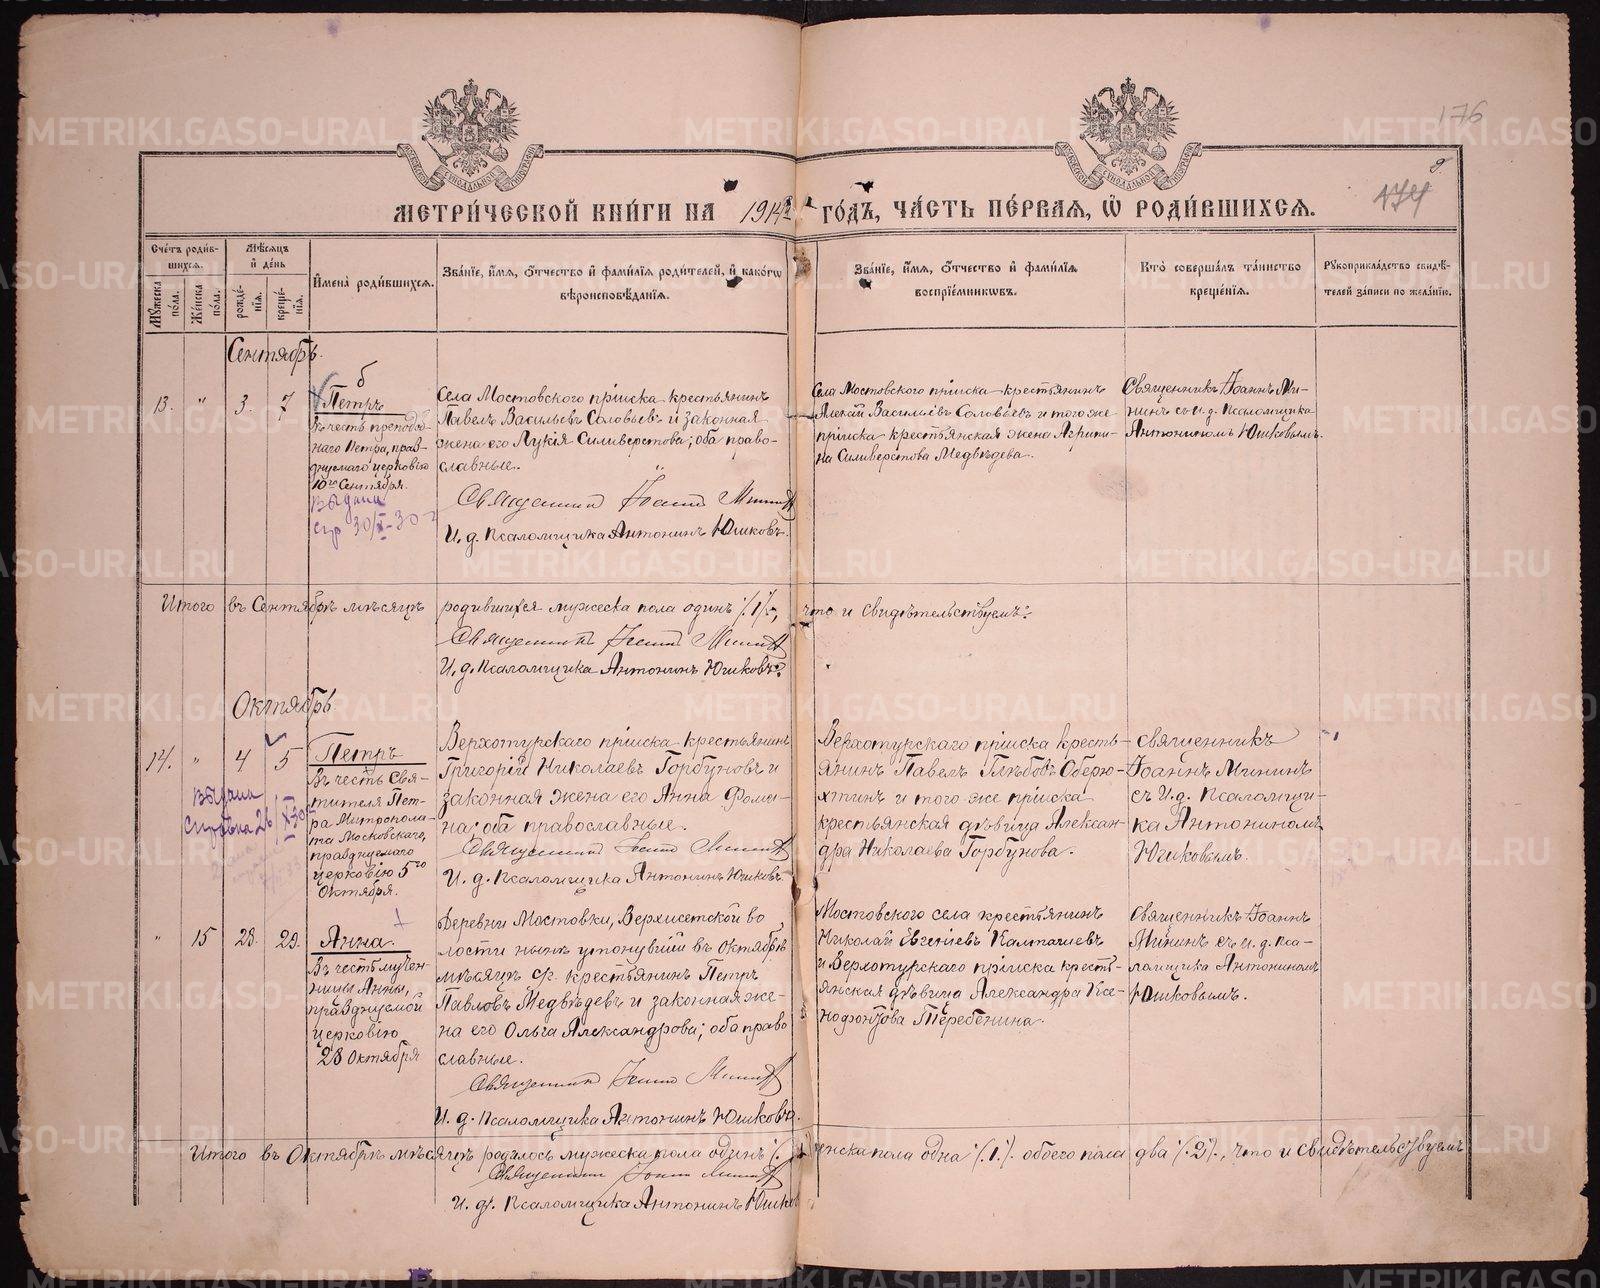 176
174
МЕТРИЧЕСКОЙ КНИГИ НА 1914 ГОДЪ, ЧАСТЬ ПЕРВАЯ, Ѡ РОДИВШИХСЯ.
Счетъ родившихся.
Мужеска пола.
Женска пола.
Мѣсяцъ и день
рожденія.
крещенія.
Имена родившихся.
Званіе, имя, отчество и фамилія родителей, и какогѡ
вѣроисповѣданія.
Званіе, имя, отчество и фамилія
воспріемникѡвъ.
Кто совершалъ таинство
крещенія.
Рукоприкладство свидѣтелей записи по желанію.
Сентябрь.
13. " 3. 7
Петръ
въ честь преподоб-
наго Петра, празд-
нуемаго церковію
10го Сентября.
Выдана
спр 30/X-30 г
Села Мостовского пріиска крестьянинъ
Павелъ Васильевъ Соловьевъ и законная
жена его Лукія Силиверстова; оба право-
славные.
Священникъ Іоаннъ Мининъ
И. д. Псаломщика Антонинъ Юшковъ.
Села Мостовского пріиска крестьянинъ
Алексѣй Васильевъ Соловьевъ и того же
пріиска крестьянская жена Агрипи-
на Силиверстова Медвѣдева.
Священникъ Іоаннъ Ми-
нинъ съ и. д. Псаломщика
Антониномъ Юшковымъ.
Итого въ Сентябрѣ мѣсяцѣ родившихся мужеска пола одинъ /1/, что и свидѣтельствуемъ:
Священникъ Іоаннъ Мининъ
И. д. Псаломщика Антонинъ Юшковъ.
Октябрь
14. " 4 5
Выдана
Справка 26/X 30 г
Петръ
Въ честь Свя-
тителя Пет-
ра Митропoли-
та Московскаго,
празднуемаго
церковію 5го
Октября.
Верхотурскаго пріиска крестьянинъ
Григорій Николаевъ Горбуновъ и
законная жена его Анна Фоми-
на; оба православные.
Священникъ Іоаннъ Мининъ
И. д. Псаломщика Антонинъ Юшковъ.
Верхотурскаго пріиска кресть-
янинъ Павелъ Глѣбовъ Оберю-
хтинъ и того же пріиска
крестьянская дѣвица Алексан-
дра Николаева Горбунова.
Священникъ
Іоаннъ Мининъ
съ И. д. Псаломщи-
ка Антониномъ
Юшковымъ.
" 15 28. 29.
Анна.
Въ честь мучен-
ницы Анны,
празднуемой
церковію
28 Октября
Деревни Мостовки, Верхисетской во
лости нынѣ утонувшій въ Октябрѣ
мѣсяцѣ с.г. крестьянинъ Петръ
Павловъ Медвѣдевъ и законная же-
на его Ольга Александрова; оба право
славные.
Священникъ Іоаннъ Мининъ
И. д. Псаломщика Антонинъ Юшковъ.
Мостовского села крестьянинъ
Николай Евгеніевъ Калташевъ
и Верхотурскаго пріиска кресть-
янская дѣвица Александра Ксе-
нофонтова Теребенина.
Священникъ Іоаннъ
Мининъ съ и. д. Пса-
ломщика Антониномъ
Юшковымъ.
Итого въ Октябрѣ мѣсяцѣ родилось мужеска пола одинъ /1/ женска пола одна /1/. обоего пола два /2/, что и свидѣтельствуемъ
Священникъ Іоаннъ Мининъ
И. д. Псаломщика Антонинъ Юшковъ
METRIKI.GASO-URAL.RU